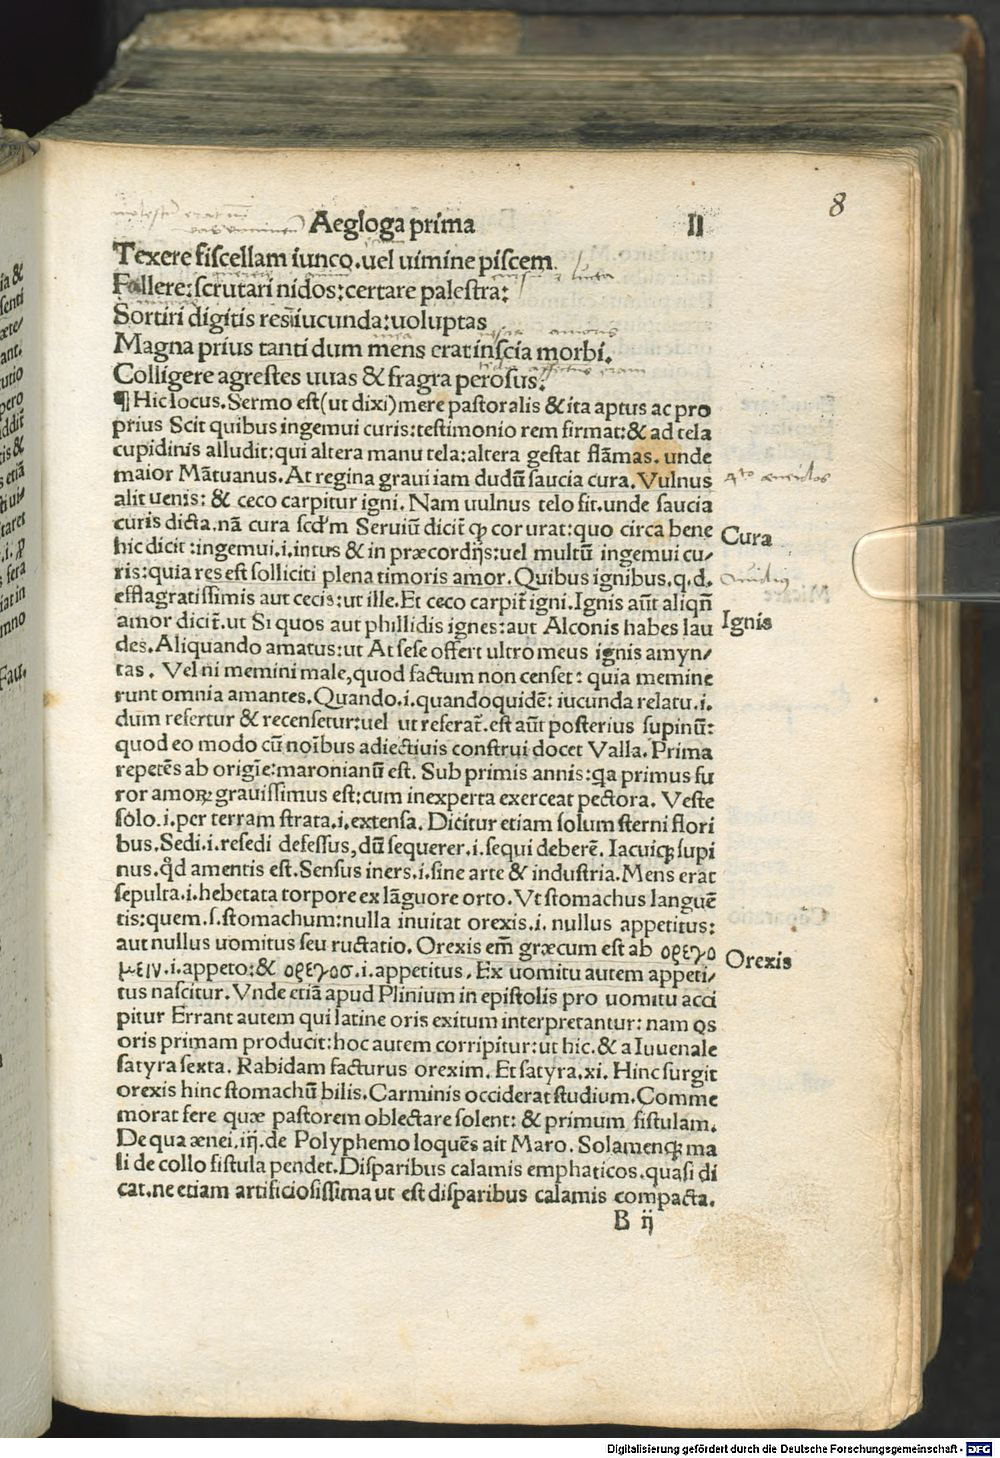 8
Aegloga prima II
Texere fiscellam iunco.uel uimine piscem
Fallere:scrutari nidos:certare palestra:
Sortiri digitis res:iucunda:uoluptas
Magna prius tanti dum mens erat inscia morbi.
Colligere agrestes uuas & fragra perosus.
¶ Hic locus.Sermo est(ut dixi)mere pastoralis & ita aptus ac pro
prius Scit quibus ingemui curis:testimonio rem firmat:& ad tela
cupidinis alludit:qui altera manu tela:altera gestat flãmas. unde
maior Mãtuanus. At regina graui iam dudũ saucia cura. Vulnus
4to aeneidos
alit uenis: & ceco carpitur igni. Nam uulnus telo fit.unde saucia
curis dicta.nã cura scd'm Seruiũ dicit̃ ꝙ cor urat:quo circa bene
Cura
hic dicit :ingemui.i.intus & in præcordijs:uel multũ ingemui cu/
ris:quia res est solliciti plena timoris amor. Quibus ignibus.q.d.
efflagratissimis aut cecis:ut ille.Et ceco carpit̃ igni.Ignis aũt aliqñ
amor dicit̃.ut Si quos aut phillidis ignes:aut Alconis habes lau
Ignis
des.Aliquando amatus:ut At sese offert ultro meus ignis amyn/
tas . Vel ni memini male,quod factum non censet : quia memine
runt omnia amantes.Quando.i.quandoquidẽ: iucunda relatu.i.
dum refertur & recensetur:uel ut referat̃.est aũt posterius supinũ:
quod eo modo cũ noĩbus adiectiuis construi docet Valla. Prima
repetẽs ab origĩe:maronianũ est. Sub primis annis:qa primus fu
ror amoꝝ grauissimus est:cum inexperta exerceat pectora. Veste
solo.i.per terram strata.i.extensa. Dicitur etiam solum sterni flori
bus.Sedi.i.resedi defessus,dũ sequerer.i.sequi deberẽ. Iacuiqꝫ supi
nus.qd amentis est.Sensus iners.i.sine arte & industria.Mens erat
sepulta.i.hebetata torpore ex lãguore orto. Vt stomachus languẽ
tis:quem.s.stomachum:nulla inuitat orexis.i. nullus appetitus:
aut nullus uomitus seu ructatio. Orexis em̃ græcum est ab ορεγο
Orexis
μειν.i.appeto:& ορεγοσ.i.appetitus. Ex uomitu autem appeti/
tus nascitur. Vnde etiã apud Plinium in epistolis pro uomitu acci
pitur Errant autem qui latine oris exitum interpretantur: nam os
oris primam producit:hoc autem corripitur:ut hic.& a Iuuenale
satyra sexta. Rabidam facturus orexim. Et satyra.xi. Hinc surgit
orexis hinc stomachũ bilis.Carminis occiderat studium.Comme
morat fere quæ pastorem oblectare solent: & primum fistulam.
De qua ænei.iij.de Polyphemo loquẽs ait Maro. Solamenqꝫ ma
li de collo fistula pendet.Disparibus calamis emphaticos.quasi di
cat.ne etiam artificiosissima ut est disparibus calamis compacta.
B ij
Digitalisierung gefördert durch die Deutsche Forschungsgemeinschaft · DFG